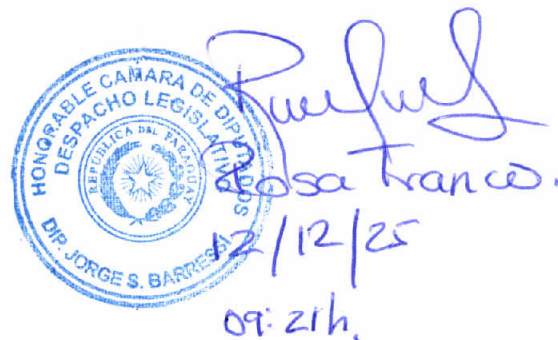 HONORABLE CAMARA DE DIPUTADOS
DESPACHO LEGISLATIVO
REPÚBLICA DEL PARAGUAY
DIP. JORGE S. BARRESSI
Rosa Franco.
12/12/25
09:21h.